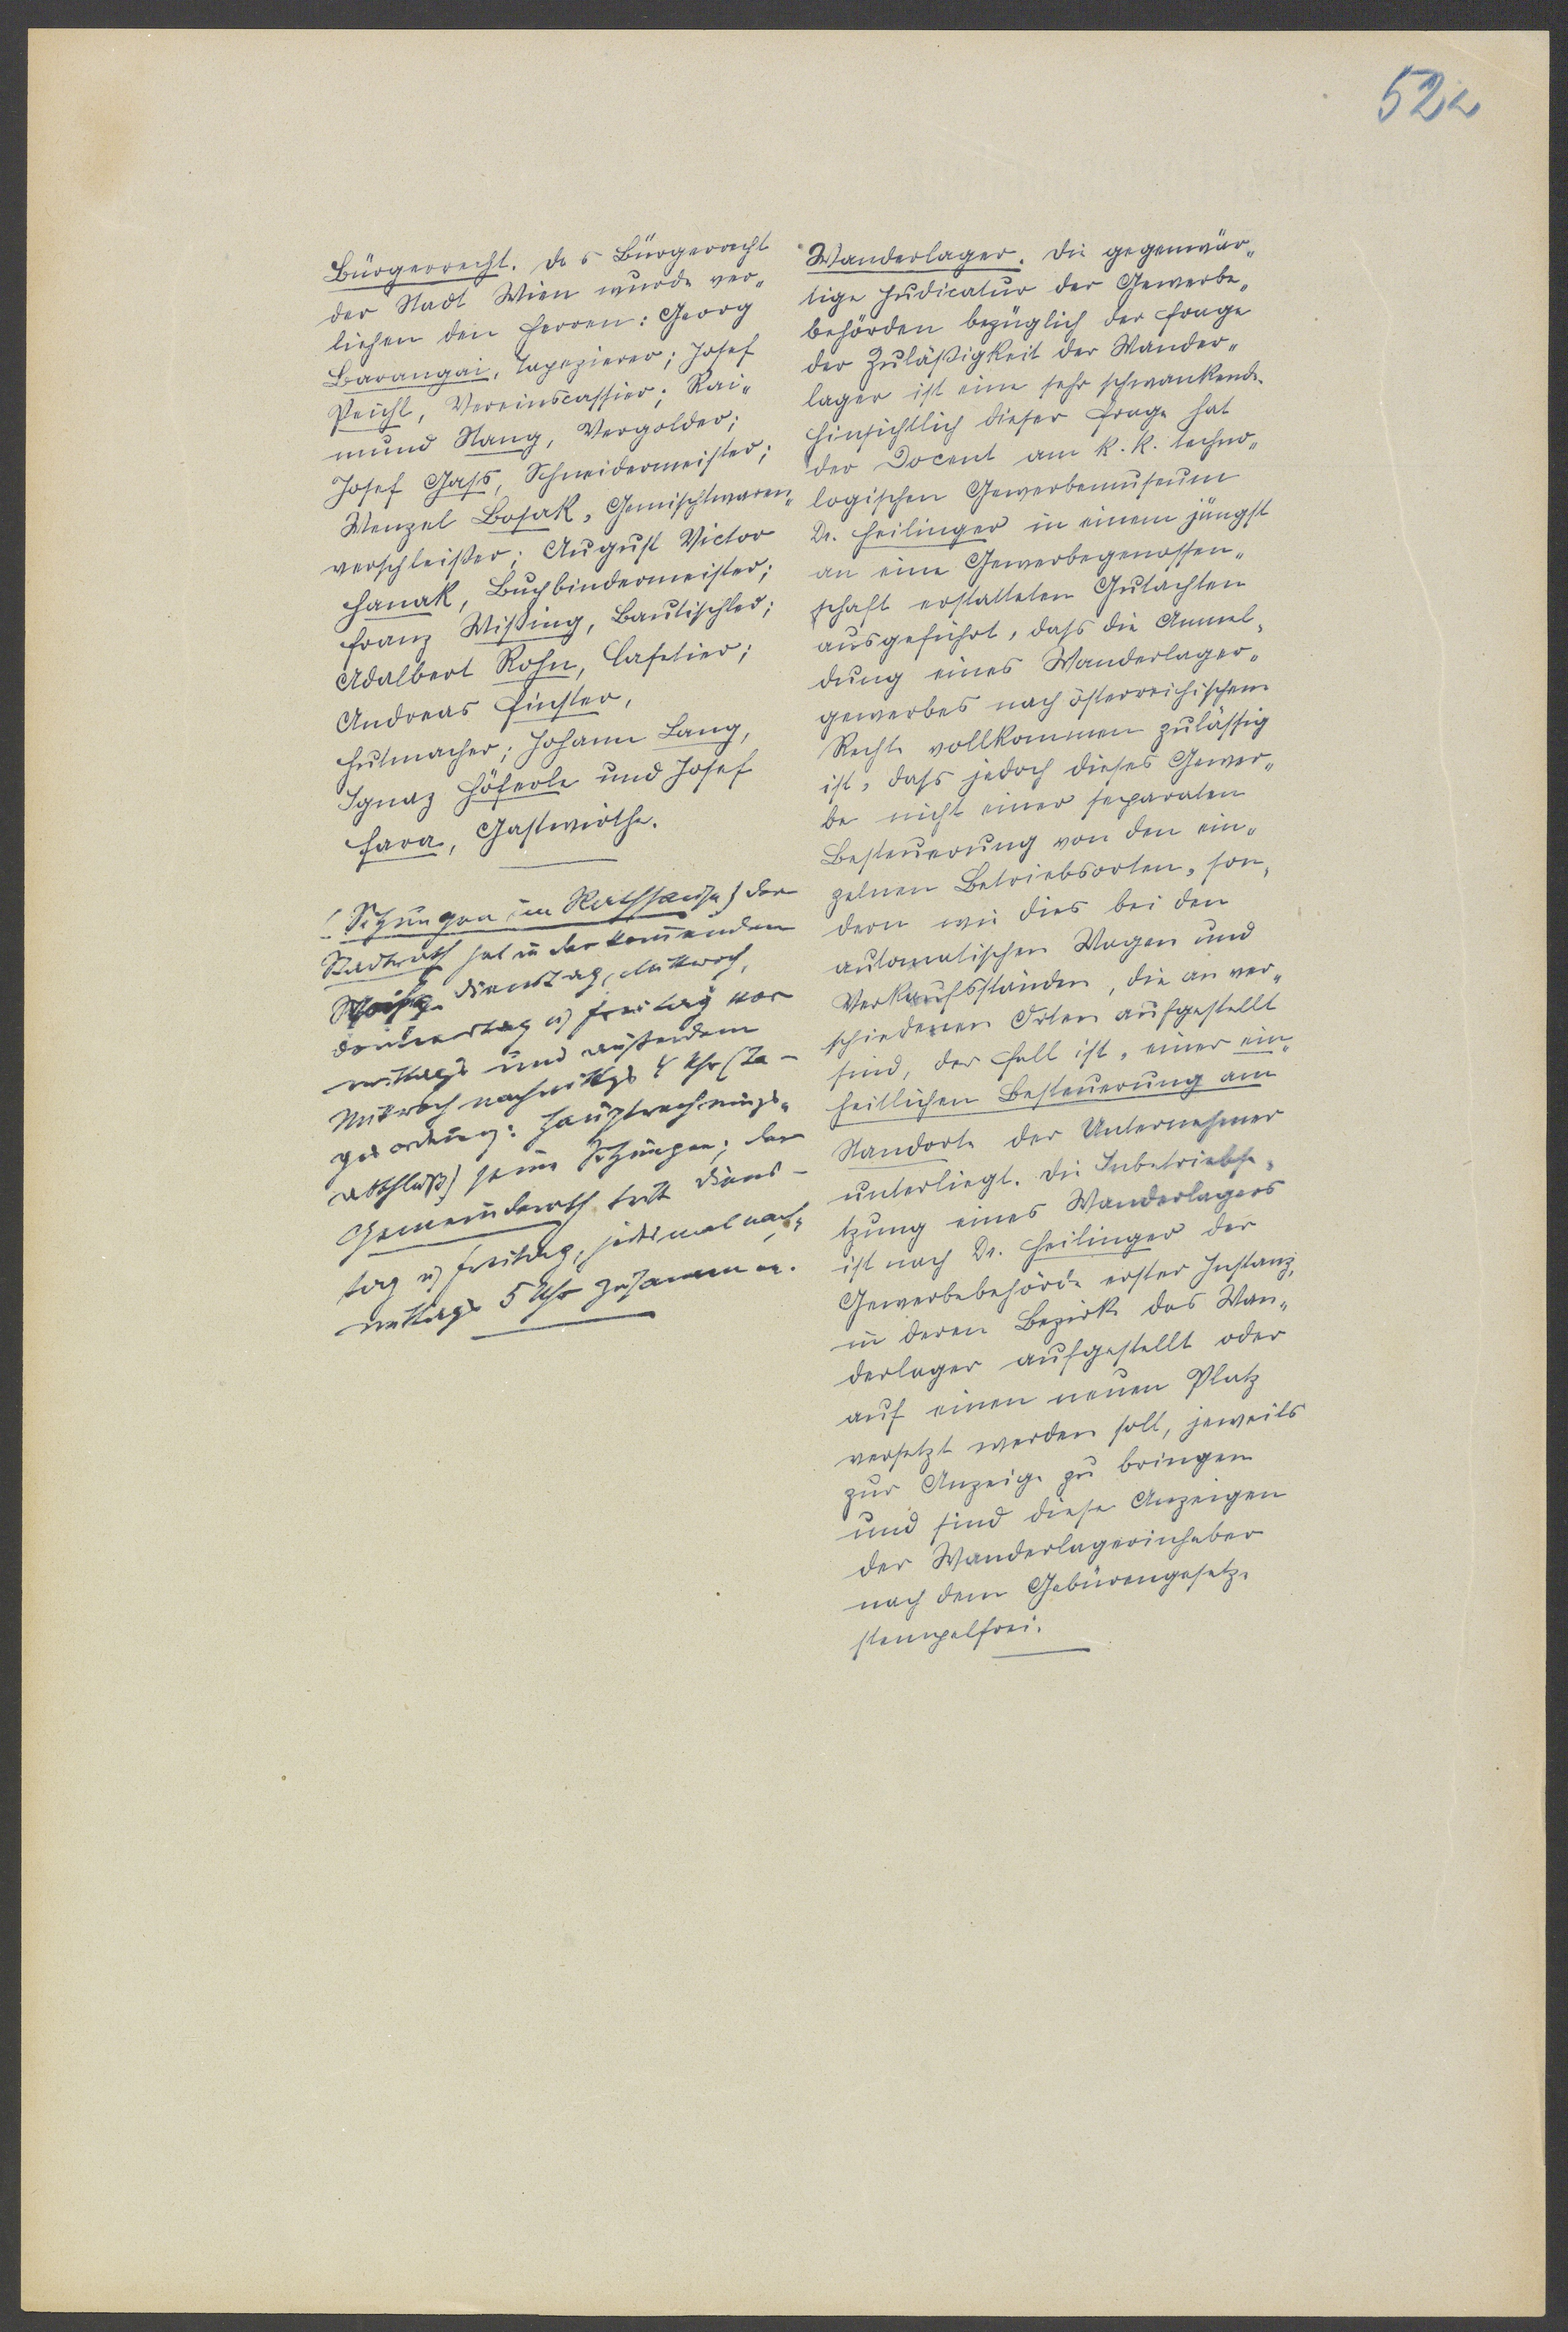 52a
Bürgerrecht. Das Bürgerrecht
der Stadt Wien wurde ver„
liehen den Herren: Georg
Barangai, Tapezierer; Josef
Peichl, Vereinscassier; Rai„
mund Stang, Vergolder;
Josef Gass, Schneidermeister;
Wenzel Bosak, Gemischtwaren„
verschleißer; August Victor
Hanak, Buchbindermeister;
Franz Wißing, Bautischler;
Adalbert Rohn, Cafetier;
Andreas Finster,
Hutmacher; Johann Lang,
Ignaz Höferle und Josef
Fara, Gastwirthe.
(Sitzungen im Rathhause) Der
Stadtrath hat in der kommenden
Woche Dienstag, Mittwoch,
Donnerstag u Freitag vor
mittags und außerdem
Mittwoch nachmittgs 4 Uhr (Ta-
gesordnung: Hauptrechnungs„
abschluß) seine Sitzungen; der
Gemeinderath tritt Diens-
tag u Freitag, jedesmal nach„
mittags 5 Uhr zusammen.
Wanderlager. Die gegenwär„
tige Judicatur der Gewerbe„
behörden bezüglich der Frage
der Zuläßigkeit der Wander„
lager ist eine sehr schwankende.
Hinsichtlich dieser Frage hat
der Docent am k. k. techno„
logischen Gewerbemuseum
Dr. Heilinger in einem jüngst
an eine Gewerbegenossen„
schaft erstatteten Gutachten
ausgeführt, dass die Anmel„
dung eines Wanderlager„
gewerbes nach österreichischem
Rechte vollkommen zulässig
ist, dass jedoch dieses Gewer„
be nicht einer separaten
Besteuerung von den ein„
zelnen Betriebsorten, son„
dern wie dies bei den
automatischen Wagen und
Verkaufsständen, die an ver„
schiedenen Orten aufgestellt
sind, der Fall ist, einer ein„
heitlichen Besteuerung am
Standorte der Unternehmer
unterliegt. Die Inbetriebse„
tzung eines Wanderlagers
ist nach Dr. Heilinger der
Gewerbebehörde erster Instanz,
in deren Bezirk das Wan„
derlager aufgestellt oder
auf einen neuen Platz
versetzt werden soll, jeweils
zur Anzeige zu bringen
und sind diese Anzeigen
der Wanderlagerinhaber
nach dem Gebürengesetze
stempelfrei.